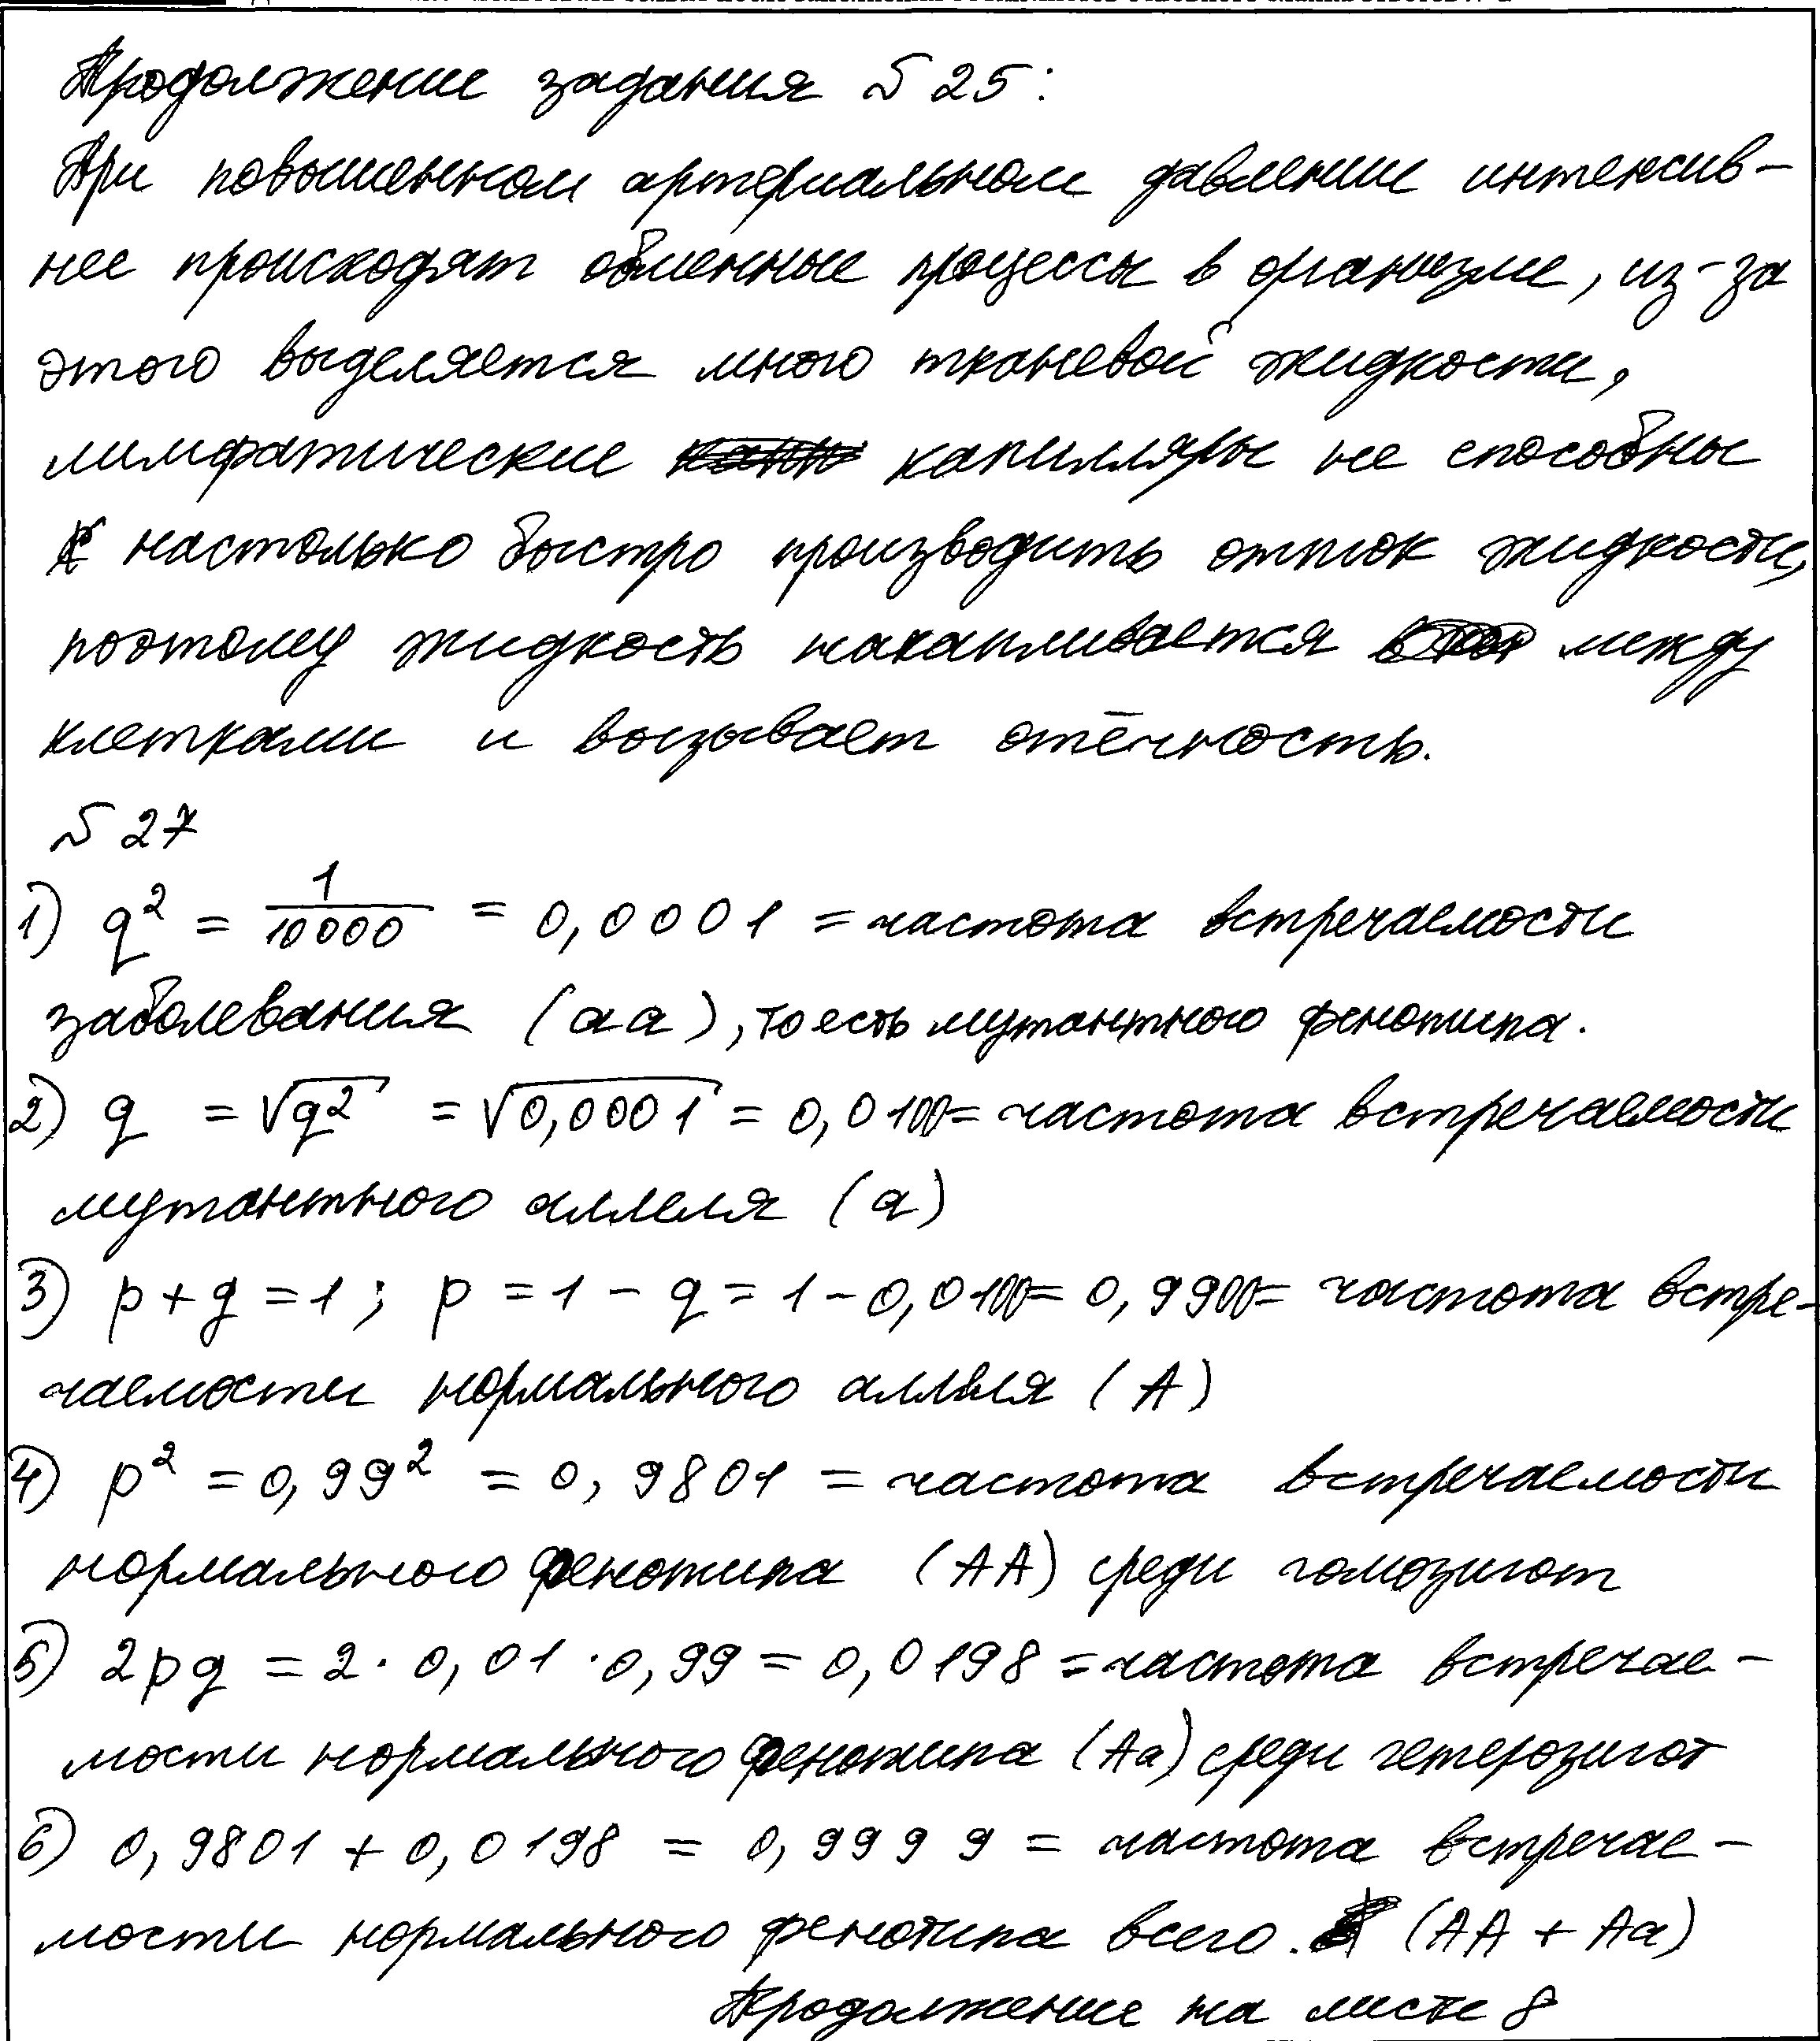 Продолжение задания № 25:
При повышенном артериальном давлении интенсив-
нее происходят обменные процессы в организме, из-за
этого выделяется много тканевой жидкости,
лимфатические капилляры не способны
настолько быстро производить отток жидкости,
поэтому жидкость накапливается между
клетками и вызывает отёчность.
№ 27
1) q² = 1/10000 = 0,0001 = частота встречаемости
заболевания (аа), то есть мутантного фенотипа.
2) q = √q² = √0,0001 = 0,0100 = частота встречаемости
мутантного аллеля (а)
3) p + q = 1; p = 1 - q = 1 - 0,0100 = 0,9900 = частота встре-
чаемости нормального аллеля (А)
4) p² = 0,99² = 0,9801 = частота встречаемости
нормального фенотипа (АА) среди гомозигот
5) 2pq = 2 · 0,01 · 0,99 = 0,0198 = частота встречае-
мости нормального фенотипа (Аа) среди гетерозигот
6) 0,9801 + 0,0198 = 0,9999 = частота встречае-
мости нормального фенотипа всего. (АА + Аа)
Продолжение на листе 8